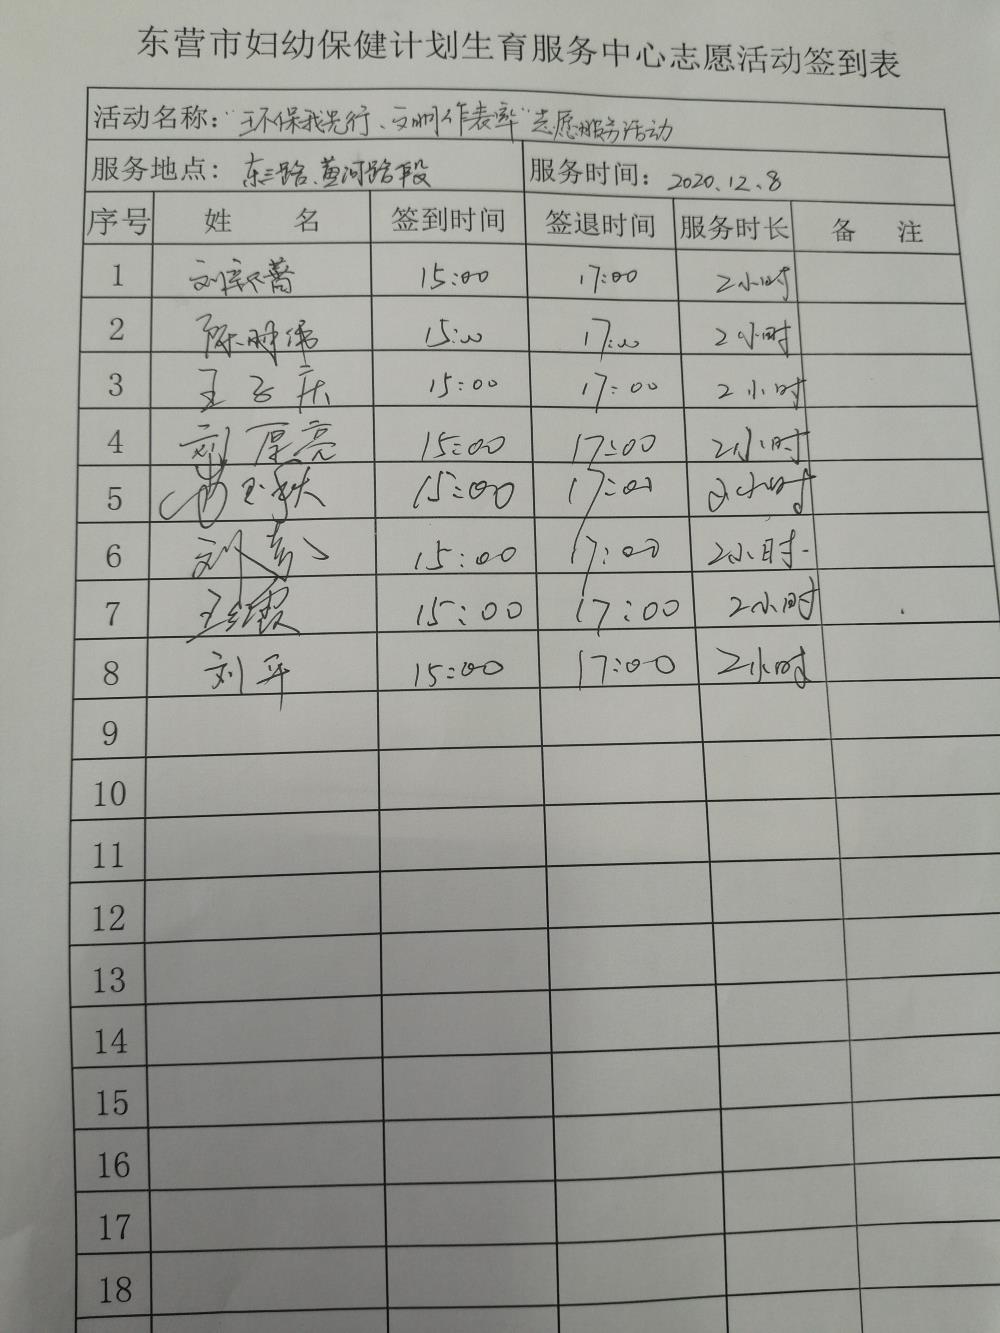 东营市妇幼保健计划生育服务中心志愿活动签到表
活动名称：“环保我先行、文明作表率”志愿服务活动
服务地点：东三路、黄河路段 服务时间：2020.12.8
序号 姓 名 签到时间 签退时间 服务时长 备 注
1 15:00 17:00 2小时
2 陈时伟 15:00 17:00 2小时
3 王子庆 15:00 17:00 2小时
4 刘厚亮 15:00 17:00 2小时
5 15:00 17:00 2小时
6 刘 15:00 17:00 2小时
7 王 15:00 17:00 2小时
8 刘平 15:00 17:00 2小时
9
10
11
12
13
14
15
16
17
18